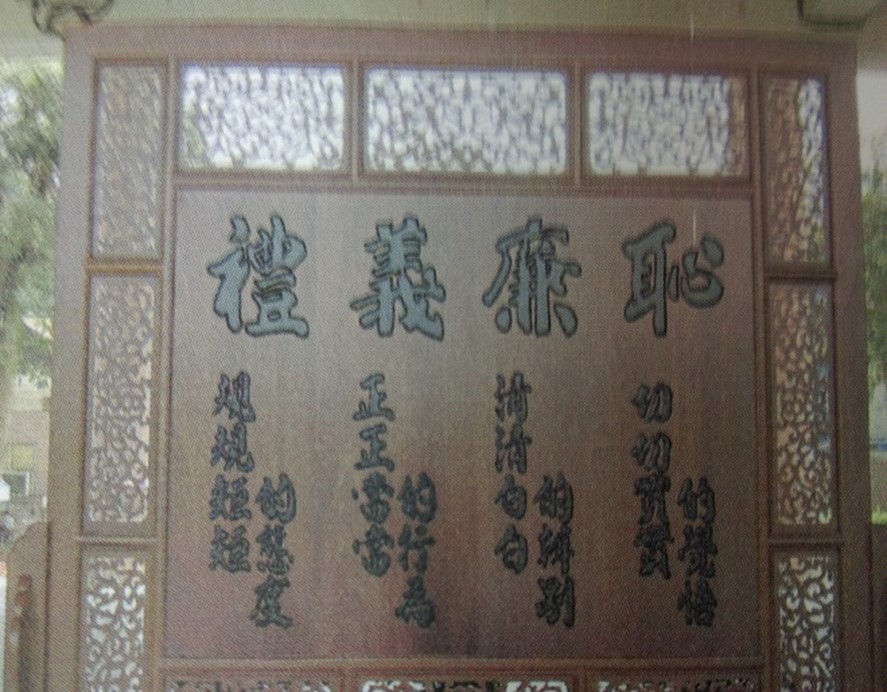 禮義廉恥
規規矩矩
的態度
正正當當
的行為
清清白白
的辨別
切切實實
的覺悟